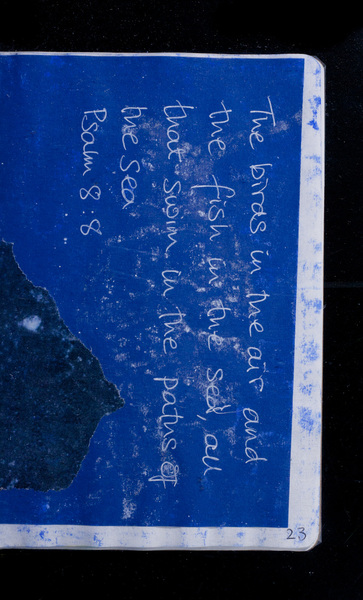 The birds in the air and
the fish in the sea, all
that swim in the paths of
the sea
Psalm 8:8
23